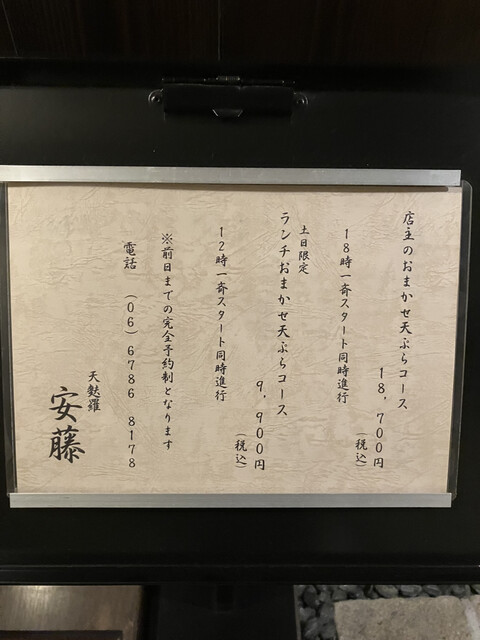 店主のおまかせ天ぷらコース
18,700円
(税込)
18時一斉スタート同時進行
土日限定
ランチおまかせ天ぷらコース
9,900円
(税込)
12時一斉スタート同時進行
※前日までの完全予約制となります
電話 (06)6786 8178
天麩羅
安藤